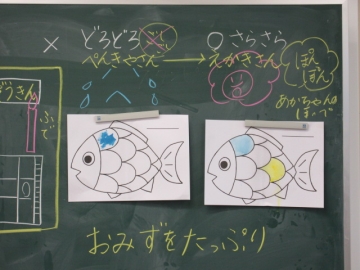 × どろどろ
○ さらさら
ぺんきやさん → えかきさん
ぽん
ぽん
あかちゃんの
ほっぺ
ぞうきん
ふで
おみずをたっぷり